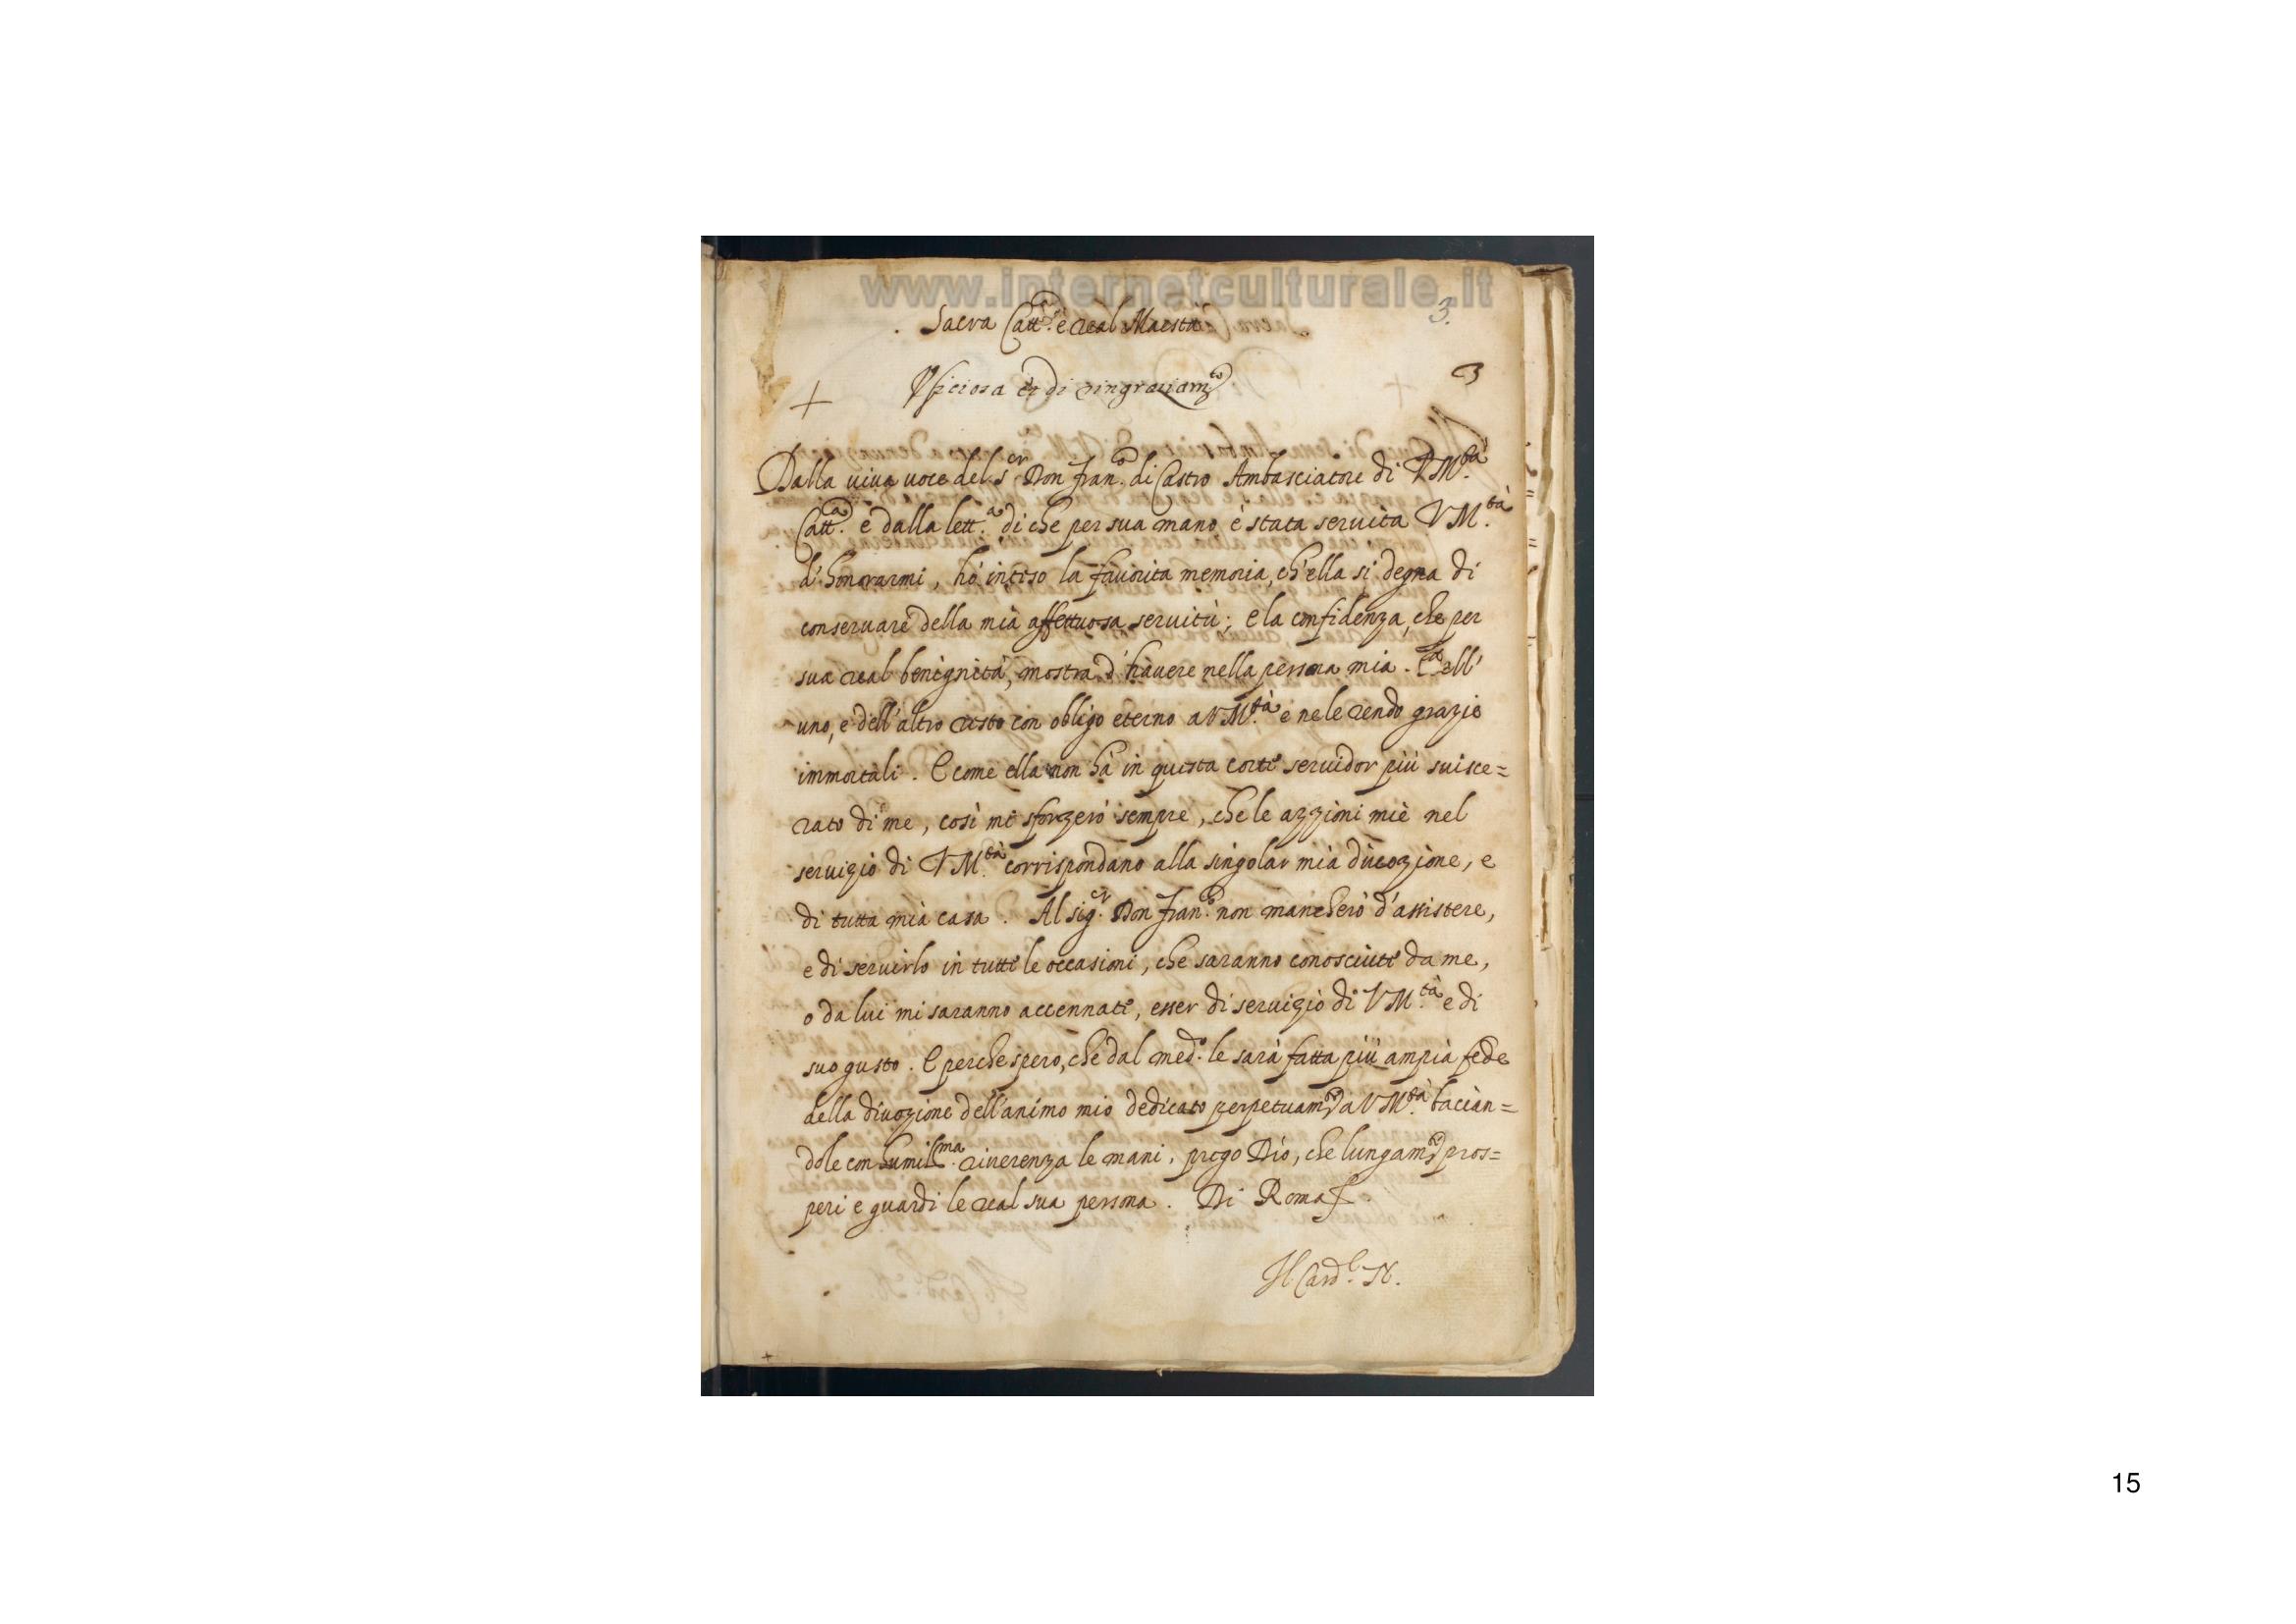 www.internetculturale.it
3.
Sacra Catt.ca e real Maestà
3
Vficiosa et di ringratiam.to
Dalla viva voce del s.er Don Fran.co di Castro Ambasciatore di V M.tà
Catt.ca e dalla lett.a di che per sua mano è stata servita V M.tà
d'honorarmi, hò inteso la favorita memoria, ch'ella si degna di
conservare della mia affettuosa servitù; e la confidenza, che per
sua real benignità, mostra d'havere nella persona mia. E dell'
uno, e dell'altro resto con obligo eterno a V M.tà e ne le rendo grazie
immortali. E come ella non hà in questa corte servidor più suisce=
rato di me, così mi sforzerò sempre, che le azzioni mie nel
servizio di V M.tà corrispondano alla singolar mia divozione, e
di tutta mia casa. Al sig.er Don Fran.co non mancherò d'assistere,
e di servirlo in tutte le occasioni, che saranno conosciute da me,
o da lui mi saranno accennate, esser di servizio di V M.tà e di
suo gusto. E perche spero, che dal med.o le sarà fatta più ampia fede
della divozione dell'animo mio dedicato perpetuam.te a V M.tà bacian=
dole con humil.ma riverenza le mani, prego Dio, che lungam.te pros=
peri e guardi le real sua persona. Di Roma
Il Card.l N.
15